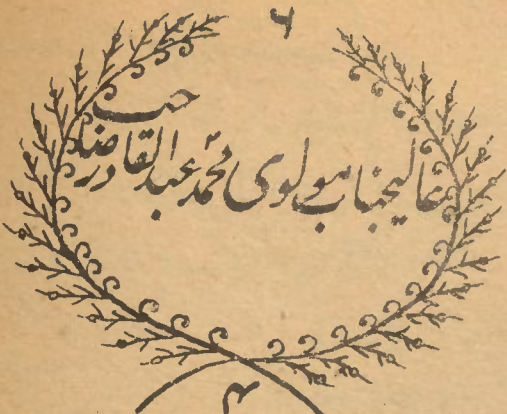 ۶
عالیجناب مولوی محمد عبدالقادر صاحب